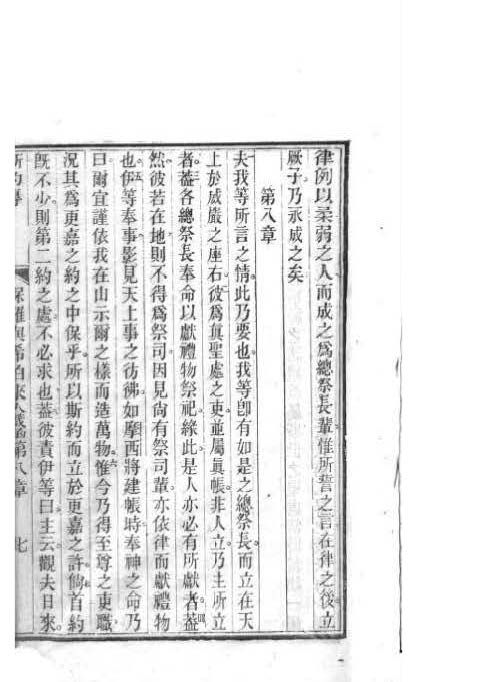 律例以柔弱之人而成之爲總祭長輩惟所誓之言在律之後立
厥子乃永成之矣
第八章
夫我等所言之情此乃要也我等卽有如是之總祭長而立在天
上於威嚴之座右二彼爲眞聖處之吏並屬眞帳非人立乃主所立
者三葢各總祭長奉命以獻禮物祭祀緣此是人亦必有所獻者四葢
然彼若在地則不得爲祭司因見尙有祭司輩亦依律而獻禮物
也五伊等奉事影見天上事之彷彿如摩西將建帳時奉神之命乃
曰爾宜謹依我在山示爾之樣而造萬物六惟今乃得至尊之吏職
況其爲更嘉之約之中保乎所以斯約而立於更嘉之許七倘首約
旣不少則第二約之處不必求也八葢彼責伊等曰主云觀夫日來
保羅與希伯來人箋書第八章 七